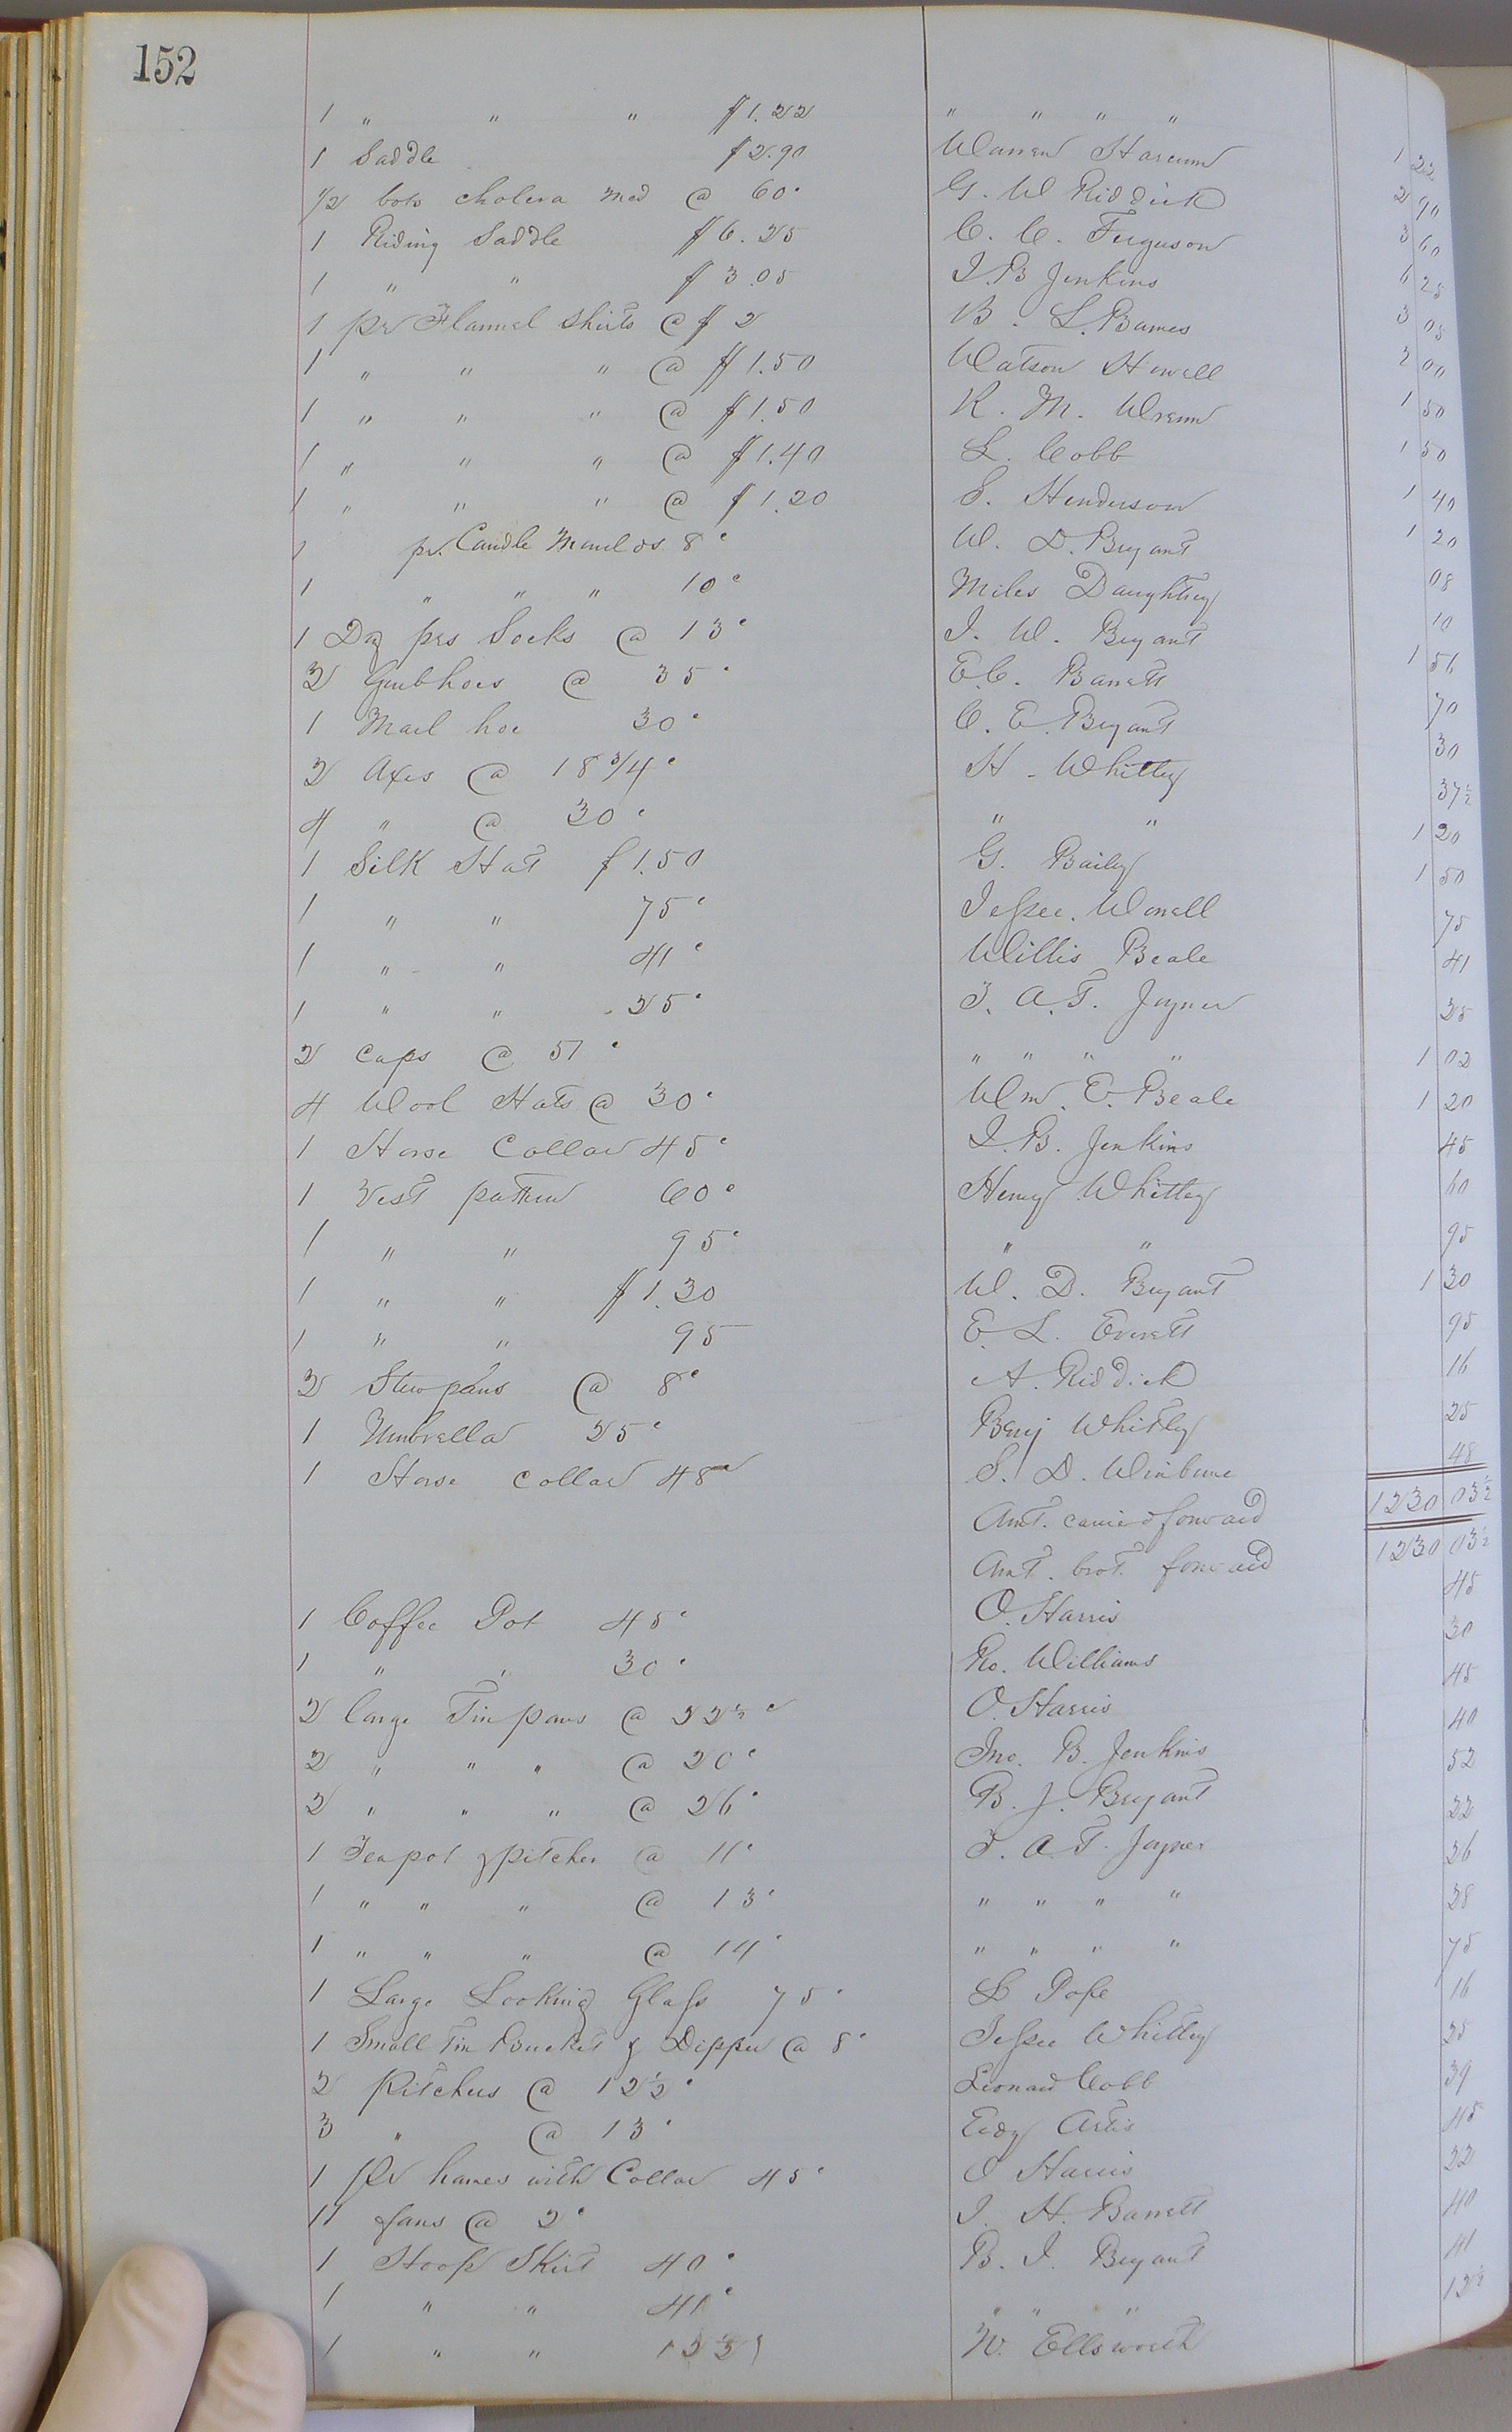 152
1 " " " $1.22 " " " " 1 22
1 Saddle $2.90 Warren Harcum 2 90
1/2 bots cholera med @ 60c G. W Riddick 3 60
1 Riding Saddle $6.25 C. C. Ferguson 6 25
1 " " $3.05 J. B Jenkins 3 05
1 pr Flannel Shirts @ $2 B. L. Barnes 2 00
1 " " " @ $1.50 Watson Howell 1 50
1 " " " @ $1.50 R. M. Wrenn 1 50
1 " " " @ $1.40 L. Cobb 1 40
1 " " " @ $1.20 S. Henderson 1 20
1 pr. Candle Moulds 8c W. D. Bryant 08
1 " " " 10c Miles Daughtry 10
1 Dz prs Socks @ 13c J. W. Bryant 1 56
2 Grubhoes @ 35c E. C. Barrett 70
1 Marl hoe 30c C. E. Bryant 30
2 Axes @ 18 3/4c H. Whitley 37 1/2
4 " @ 30c " " 1 20
1 Silk Hat $1.50 G. Baily 1 50
1 " " 75c Jessee. Worrell 75
1 " " 41c Willis Beale 41
1 " " 25c T. A. T. Joyner 25
2 Caps @ 51c " " " " 1 02
4 Wool Hats @ 30c Wm. E. Beale 1 20
1 Horse Collar 45c J. B. Jenkins 45
1 Vest pattern 60c Henry Whitley 60
1 " " 95c " " 95
1 " " $1.30 W. D. Bryant 1 30
1 " " 95 E. L. Everett 95
2 Stewpans @ 8c A. Riddick 16
1 Umbrella 25c Benj Whitley 25
1 Horse Collar 48c S. D. Winburne 48
Amt. carried forward 1230 03 1/2
Amt. brot. forward 1230 03 1/2
1 Coffee Pot 45c O. Harris 45
1 " " 30c Ro. Williams 30
2 large Tin pans @ 22 1/2c O. Harris 45
2 " " " @ 20c Jno. B. Jenkins 40
2 " " " @ 26c B. J. Bryant 52
1 Teapot & pitcher @ 11c T. A. T. Joyner 22
1 " " " @ 13c " " " " 26
1 " " " @ 14c " " " " 28
1 Large Looking Glass 75c L Pope 75
1 Small Tin Bucket & Dipper @ 8c Jessee Whitley 16
2 Pitchers @ 12 1/2c Leonard Cobb 25
3 " @ 13c Eedy Artis 39
1 Pr hames with Collar 45c O Harris 45
11 fans @ 2c J. H. Barrett 22
1 Hoop Skirt 40c B. J. Bryant 40
1 " " 41c " " " 41
1 " " 12 1/2 W. Ellsworth 12 1/2